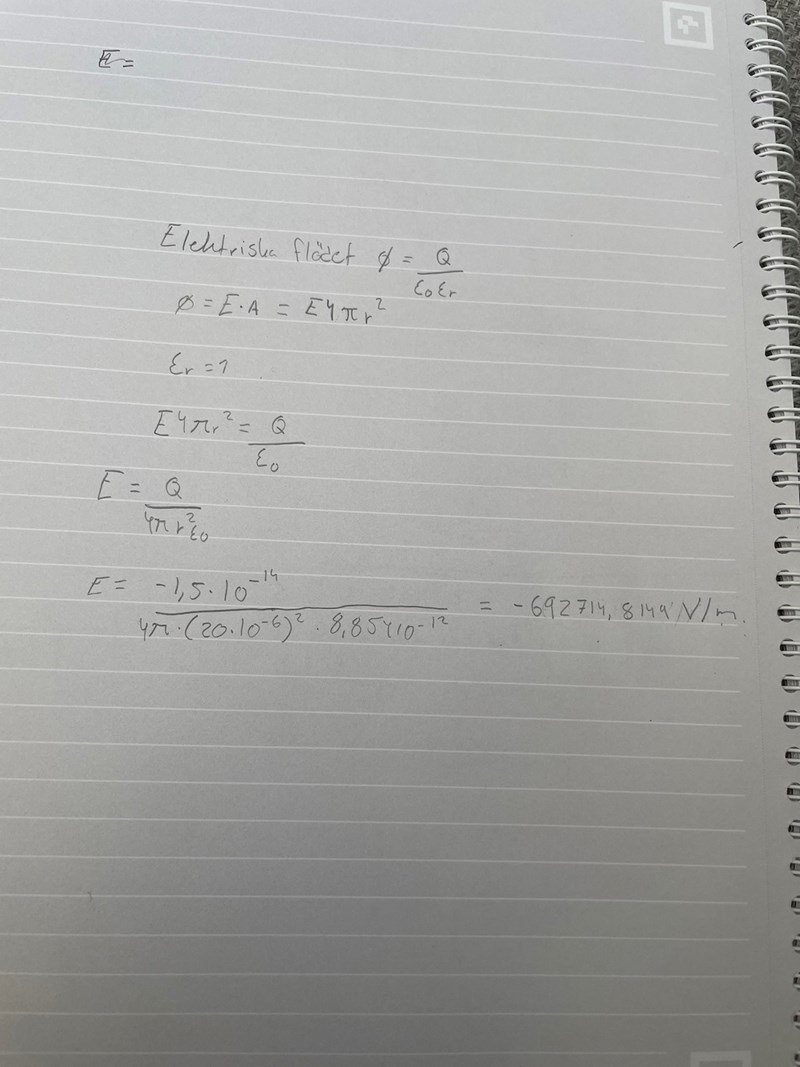 E =
Elektriska flödet ∅ = Q / ε₀ εr
∅ = E · A = E 4πr²
εr = 1
E 4πr² = Q / ε₀
E = Q / 4πr²ε₀
E = -1,5 · 10⁻¹⁴ / 4π · (20 · 10⁻⁶)² · 8,854 10⁻¹² = -692714,8149 V/m.